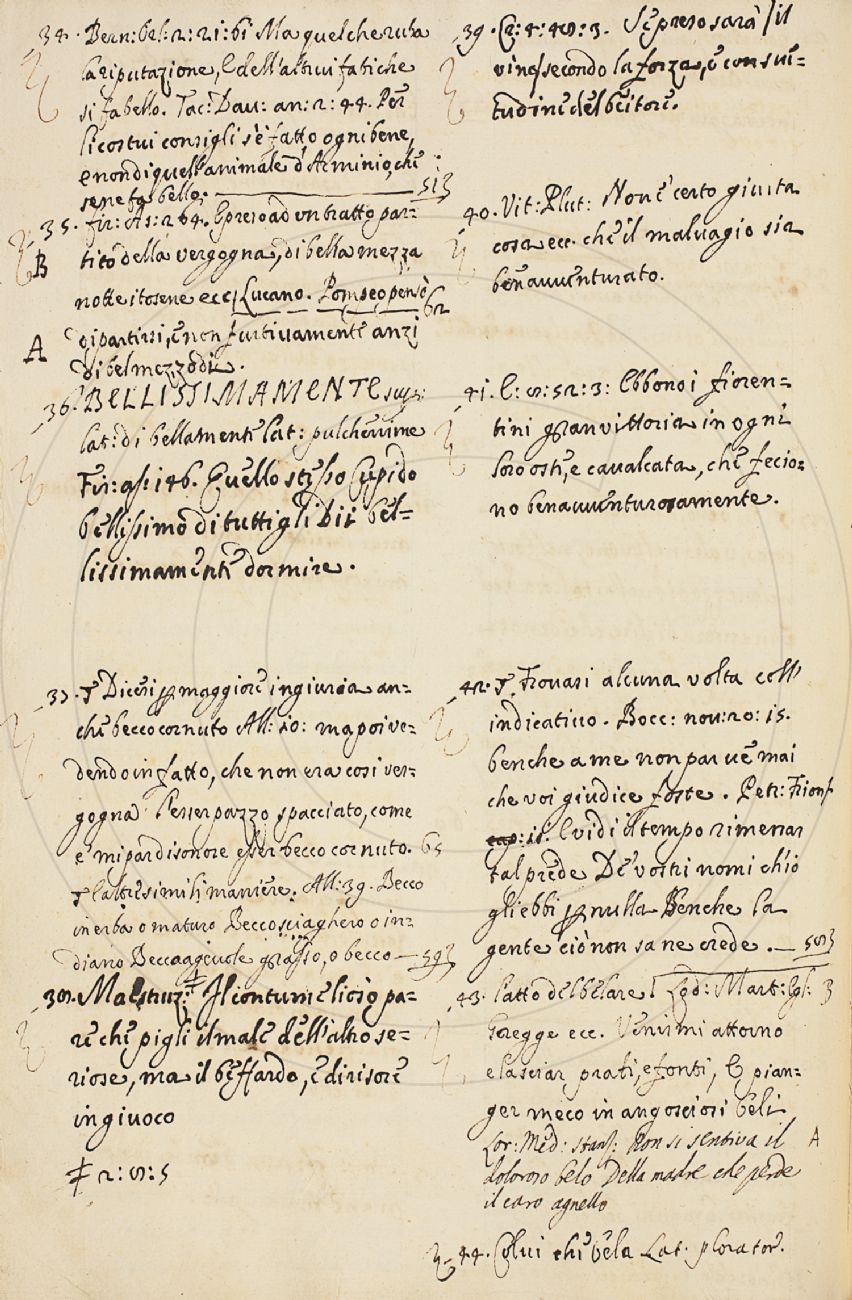 34. Bern: Orl: 2: 21: 61 Ma quel che ruba
la riputazione, e dell'altrui fatiche
si fa bello. Tac: Dav: an: 2: 44. Per
li costui consigli s'è fatto ogni bene,
e non di quell'animale d'Arminio, che
se ne fa bello. 513
35. fir: As: 264. E preso ad un tratto par=
tito della vergogna, di bella mezza
B
notte itosene ecc. Lucano. Pompeo pensò 62
A dipartirsi, e non furtivamente anzi
di bel mezzodì.
36. BELLISSIMAMENTE sup:
lat: di bellamente lat: pulcherrime
Fir: as: 146. Quello stesso Cupido
bellissimo di tutti gli Dii bel=
lissimamente dormire.
37. Dicesi per maggiore ingiuria an=
che becco cornuto All: 10: ma poi ve=
dendo in fatto, che non era così ver=
gogna L'esser pazzo spacciato, come
e' mi par disonore esser becco cornuto. 65
E altre simili maniere. All: 39. Becco
in erba o maturo Becco sciaghero o in=
diano Becco agevole grasso, o becco 593
38. Maestruz: Il contumelioso pa=
re che pigli il male dell'altro se=
riose, ma il beffardo, e derisore
in giuoco
2: 8: 5
39. Cr: 4: 48: 3. Se preso sarà il
vin secondo la forza, e consue=
tudine del bevitore.
40. Vit: Plut: Non è certo giusta
cosa ecc. che il malvagio sia
benavventurato.
41. G: 8: 52: 3: Ebbono i fioren=
tini gran vittoria in ogni
loro oste, e cavalcata, che fecio=
no benavventurosamente.
42. Trovasi alcuna volta coll'
indicativo. Bocc: nov: 20: 15.
benche a me non parve mai
che voi giudice foste. Petr: Trionf
cap: 11. E vidi il tempo rimenar
tal prede De' vostri nomi ch'io
gli ebbi per nulla Benche la
gente ciò non sa ne crede. 583
43. l'atto del belare Lod: Mart: Egl: 3
Gregge ecc. Venirmi attorno
e lasciar prati, e fonti, E pian=
ger meco in angosciosi beli
Lor: Med: stanz: Non si sentiva il A
doloroso belo Della madre che perde
il caro agnello
44. Colui che bela Lat. plorator.